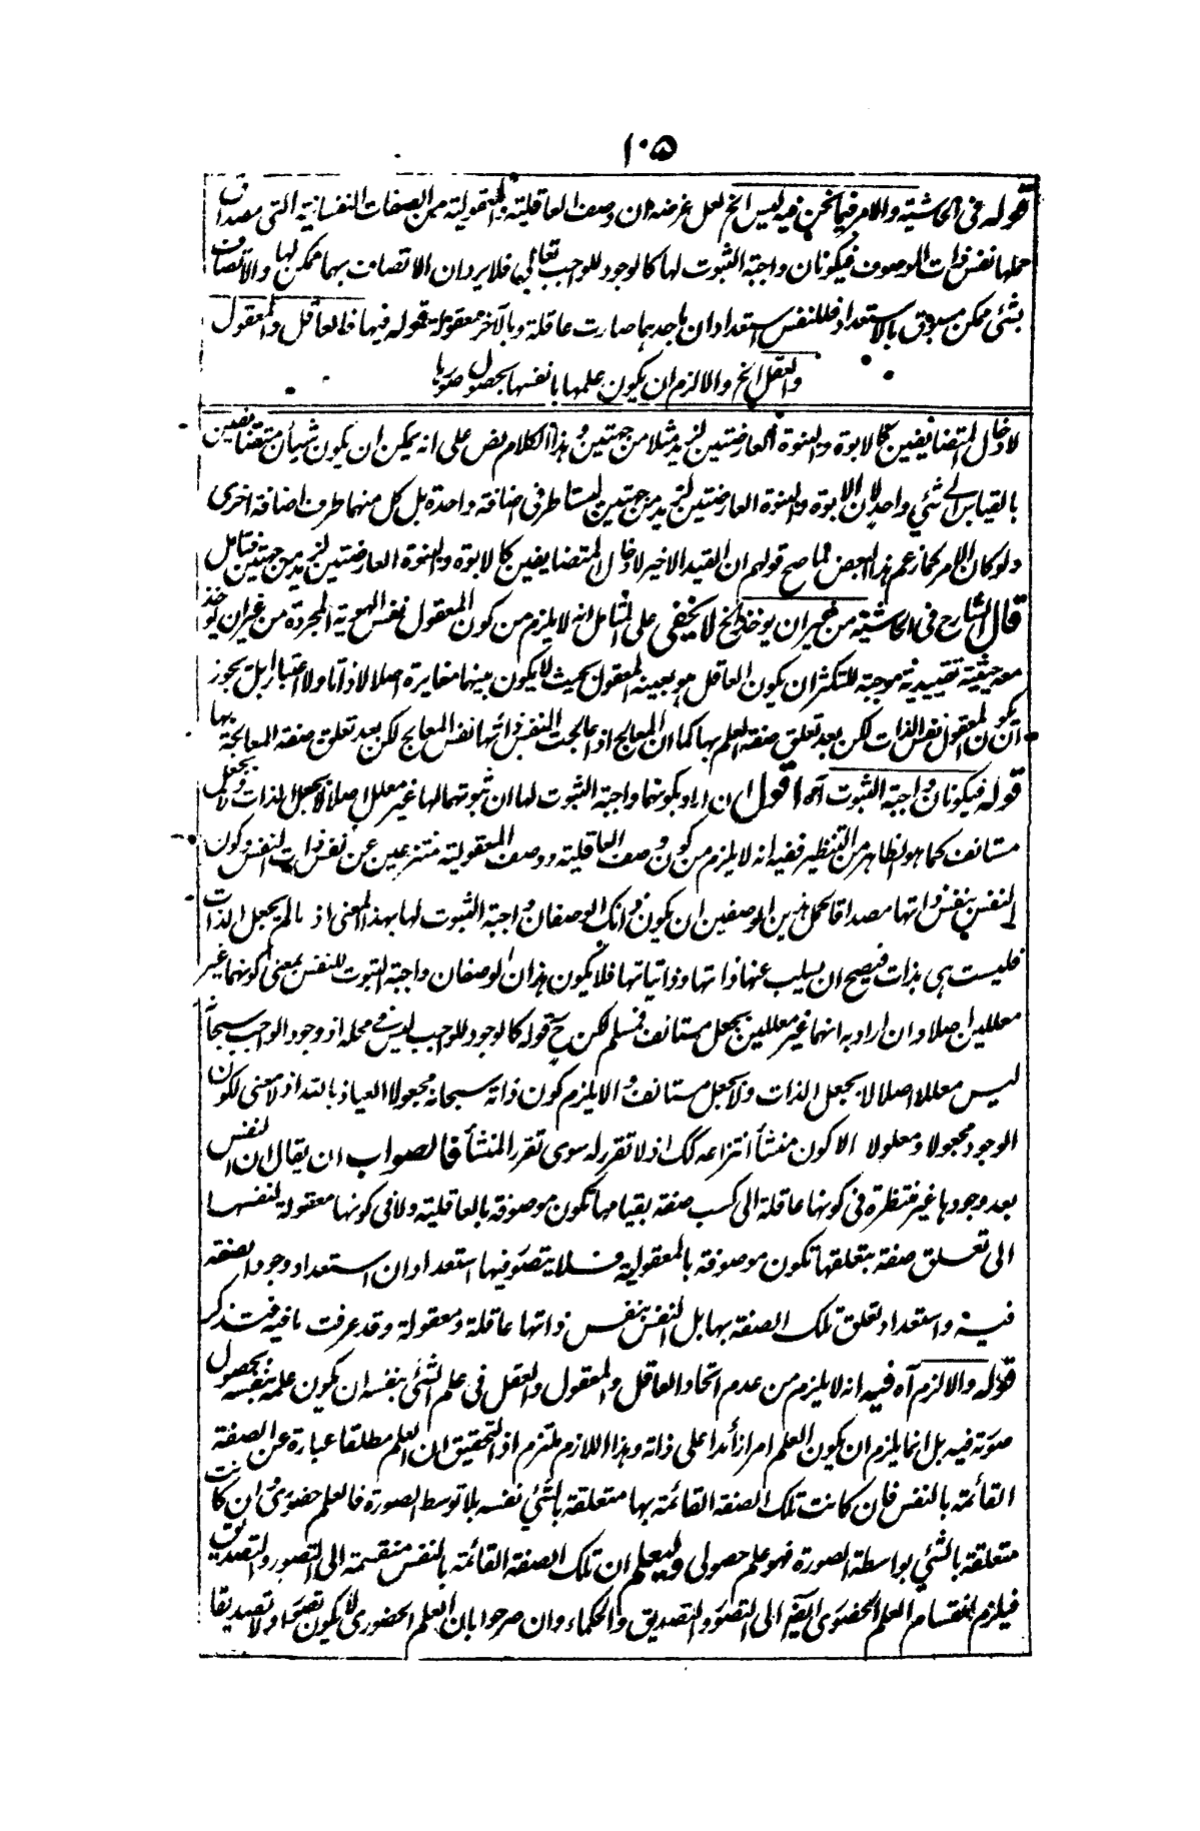 ١٠٥
قوله في الحاشية والامر فيما نحن فيه ليس الخ لعل غرضه ان وصف العاقلية والمعقولية من الصفات النفسانية التى مصداق
حملها نفس ذات الموصوف فيكونان واجبة الثبوت لها كالوجود للواجب تعالى فلا يرد ان الاتصاف بهما ممكن لها والاتصاف
بشئ ممكن مسبوق بالاستعداد فللنفس استعدادان باحدهما صارت عاقلة وبالآخر معقولة قوله فيها فالعاقل والمعقول
والعقل الخ والا لزم ان يكون علمها بانفسها بحصول صورها
لادخال المتضايفين كالابوة والبنوة العارضتين لزيد مثلا من جهتين وهذا الكلام نص على انه يمكن ان يكون شيأن متضايفين
بالقياس الى شئ واحد لان الابوة والبنوة العارضتين لزيد من جهتين ليستا طرفى اضافة واحدة بل كل منهما طرف اضافة اخرى
ولو كان الامر كما زعم هذا البعض لما صح قولهم ان القيد الاخير لادخال المتضايفين كالابوة والبنوة العارضتين لزيد من جهتين فتامل
قال الشارح فى الحاشية من غير ان يوخذ الخ لا يخفى على المتامل انه لا يلزم من كون المعقول نفس الهوية المجردة من غير ان يوخذ
معه حيثية تقييدية موجبة للتكثر ان يكون العاقل هو بعينه المعقول بحيث لا يكون بينهما مغايرة اصلا لا ذاتا ولا اعتبارا بل يجوز
ان يكون المعقول نفس الذات لكن بعد تعلق صفة العلم بها كما ان المعالج اذا عالجت النفس ذاتها نفس المعالج لكن بعد تعلق صفة المعالجة بها
قوله فيكونان واجبة الثبوت آه اقول ان اراد بكونهما واجبة الثبوت لها ان ثبوتهما لها غير معلل اصلا لا بجعل الذات ولا بجعل
مستانف كما هو الظاهر من التنظير ففيه انه لا يلزم من كون وصف العاقلية ووصف المعقولية منتزعين عن نفس ذات النفس وكون
النفس بنفس ذاتها مصداقا لحمل هذين الوصفين ان يكون ذانك الوصفان واجبة الثبوت لها بهذا المعنى اذ ما لم يجعل الذات
فليست هى بذات فيصح ان يسلب عنها ذاتها وذاتياتها فلا يكون هذان الوصفان واجبة الثبوت للنفس بمعنى كونهما غير
معللين اصلا وان اراد به انهما غير معللين بجعل مستانف فمسلم لكن ح قوله كالوجود للواجب ليس فى محله اذ وجود الواجب سبحانه
ليس معللا اصلا لا بجعل الذات ولا بجعل مستانف والا يلزم كون ذاته سبحانه مجعولا العياذ بالله اذ لا معنى لكون
الوجود مجعولا ومعلولا الا كون منشأ انتزاعه كك اذ لا تقرر له سوى تقرر المنشأ فالصواب ان يقال ان النفس
بعد وجودها غير منتظرة فى كونها عاقلة الى كسب صفة بقيامها تكون موصوفة بالعاقلية ولا فى كونها معقولة لنفسها
الى تعلق صفة بتعلقها تكون موصوفة بالمعقولية فلا يتصور فيها استعدادان استعداد وجود الصفة
فيه واستعداد لتعلق تلك الصفة بها بل النفس بنفس ذاتها عاقلة ومعقولة وقد عرفت ما فيه فتذكر
قوله والا لزم آه فيه انه لا يلزم من عدم اتحاد العاقل والمعقول والعقل فى علم الشئ بنفسه ان يكون علمه بنفسه بحصول
صورته فيه بل انما يلزم ان يكون العلم امرا زائدا على ذاته وهذا اللازم ملتزم اذ التحقيق ان العلم مطلقا عبارة عن الصفة
القائمة بالنفس فان كانت تلك الصفة القائمة بها متعلقة بالشئ نفسه بلا توسط الصورة فالعلم حضورى وان كانت
متعلقة بالشئ بواسطة الصورة فهو علم حصولى وليعلم ان تلك الصفة القائمة بالنفس منقسمة الى التصور والتصديق
فيلزم انقسام العلم الحضورى ايضا الى التصور والتصديق والحكماء وان صرحوا بان العلم الحضورى لا يكون تصورا ولا تصديقا